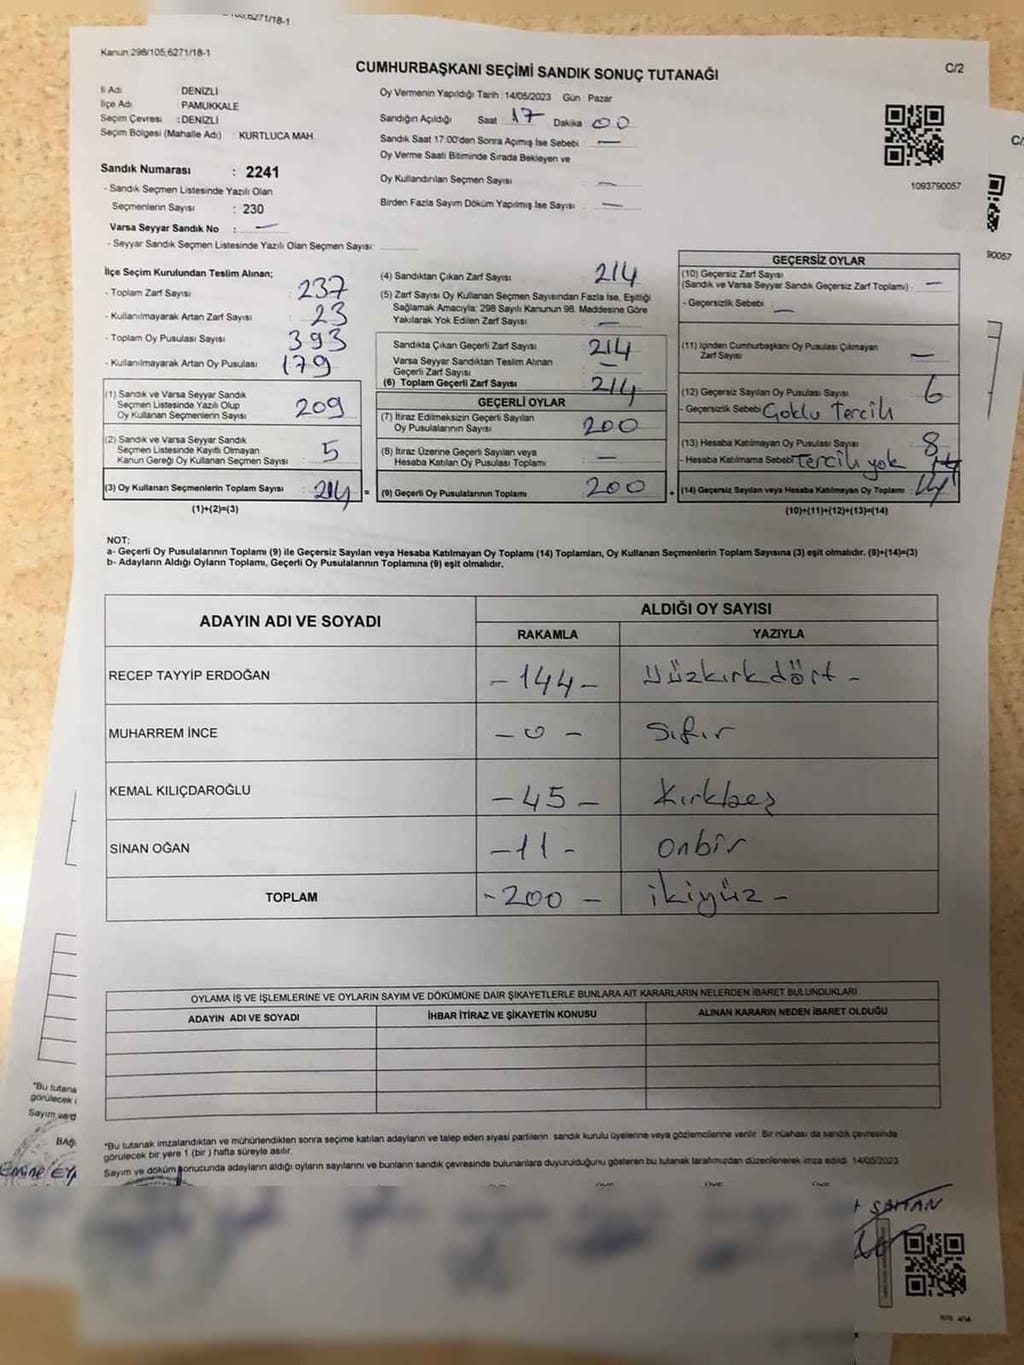 Kanun:298/105,6271/18-1
C/2
CUMHURBAŞKANI SEÇİMİ SANDIK SONUÇ TUTANAĞI
İl Adı : DENİZLİ
İlçe Adı : PAMUKKALE
Seçim Çevresi : DENİZLİ
Seçim Bölgesi (Mahalle Adı) : KURTLUCA MAH.
Sandık Numarası : 2241
- Sandık Seçmen Listesinde Yazılı Olan
Seçmenlerin Sayısı : 230
Varsa Seyyar Sandık No : —
- Seyyar Sandık Seçmen Listesinde Yazılı Olan Seçmen Sayısı:
Oy Vermenin Yapıldığı Tarih :14/05/2023 Gün : Pazar
Sandığın Açıldığı Saat 17 Dakika 00
Sandık Saat 17:00'den Sonra Açımış İse Sebebi —
Oy Verme Saati Bitiminde Sırada Bekleyen ve
Oy Kullandırılan Seçmen Sayısı —
Birden Fazla Sayım Döküm Yapılmış İse Sayısı —
1093790057
İlçe Seçim Kurulundan Teslim Alınan;
- Toplam Zarf Sayısı : 237
- Kullanılmayarak Artan Zarf Sayısı : 23
- Toplam Oy Pusulası Sayısı : 393
- Kullanılmayarak Artan Oy Pusulası : 179
(1) Sandık ve Varsa Seyyar Sandık
Seçmen Listesinde Yazılı Olup
Oy Kullanan Seçmenlerin Sayısı : 209
(2) Sandık ve Varsa Seyyar Sandık
Seçmen Listesinde Kayıtlı Olmayan
Kanun Gereği Oy Kullanan Seçmen Sayısı : 5
(3) Oy Kullanan Seçmenlerin Toplam Sayısı : 214 =
(1)+(2)=(3)
(4) Sandıktan Çıkan Zarf Sayısı 214
(5) Zarf Sayısı Oy Kullanan Seçmen Sayısından Fazla İse, Eşitliği
Sağlamak Amacıyla, 298 Sayılı Kanunun 98. Maddesine Göre
Yakılarak Yok Edilen Zarf Sayısı —
Sandıkta Çıkan Geçerli Zarf Sayısı 214
Varsa Seyyar Sandıktan Teslim Alınan
Geçerli Zarf Sayısı —
(6) Toplam Geçerli Zarf Sayısı 214
GEÇERLİ OYLAR
(7) İtiraz Edilmeksizin Geçerli Sayılan
Oy Pusulalarının Sayısı 200
(8) İtiraz Üzerine Geçerli Sayılan veya
Hesaba Katılan Oy Pusulası Toplamı —
(9) Geçerli Oy Pusulalarının Toplamı 200 +
GEÇERSİZ OYLAR
(10) Geçersiz Zarf Sayısı
(Sandık ve Varsa Seyyar Sandık Geçersiz Zarf Toplamı) : —
- Geçersizlik Sebebi : —
(11) İçinden Cumhurbaşkanı Oy Pusulası Çıkmayan
Zarf Sayısı —
(12) Geçersiz Sayılan Oy Pusulası Sayısı 6
- Geçersizlik Sebebi Çoklu tercih
(13) Hesaba Katılmayan Oy Pusulası Sayısı 8
- Hesaba Katılmama Sebebi Tercih yok
(14) Geçersiz Sayılan veya Hesaba Katılmayan Oy Toplamı 14
(10)+(11)+(12)+(13)=(14)
NOT:
a- Geçerli Oy Pusulalarının Toplamı (9) ile Geçersiz Sayılan veya Hesaba Katılmayan Oy Toplamı (14) Toplamları, Oy Kullanan Seçmenlerin Toplam Sayısına (3) eşit olmalıdır. (9)+(14)=(3)
b- Adayların Aldığı Oyların Toplamı, Geçerli Oy Pusulalarının Toplamına (9) eşit olmalıdır.
ADAYIN ADI VE SOYADI
ALDIĞI OY SAYISI
RAKAMLA YAZIYLA
RECEP TAYYİP ERDOĞAN -144- Yüzkırkdört -
MUHARREM İNCE -0- Sıfır
KEMAL KILIÇDAROĞLU -45- Kırkbeş
SİNAN OĞAN -11- Onbir
TOPLAM -200- ikiyüz -
OYLAMA İŞ VE İŞLEMLERİNE VE OYLARIN SAYIM VE DÖKÜMÜNE DAİR ŞİKAYETLERLE BUNLARA AİT KARARLARIN NELERDEN İBARET BULUNDUKLARI
ADAYIN ADI VE SOYADI İHBAR İTİRAZ VE ŞİKAYETİN KONUSU ALINAN KARARIN NEDEN İBARET OLDUĞU
*Bu tutanak imzalandıktan ve mühürlendikten sonra seçime katılan adayların ve talep eden siyasi partilerin sandık kurulu üyelerine veya gözlemcilerine verilir. Bir nüshası da sandık çevresinde
görülecek bir yere 1 (bir ) hafta süreyle asılır.
Sayım ve döküm sonucunda adayların aldığı oyların sayılarını ve bunların sandık çevresinde bulunanlara duyurulduğunu gösteren bu tutanak tarafımızdan düzenlenerek imza edildi. 14/05/2023
*Bu tutana
görülecek
Sayım ve d
BAŞ